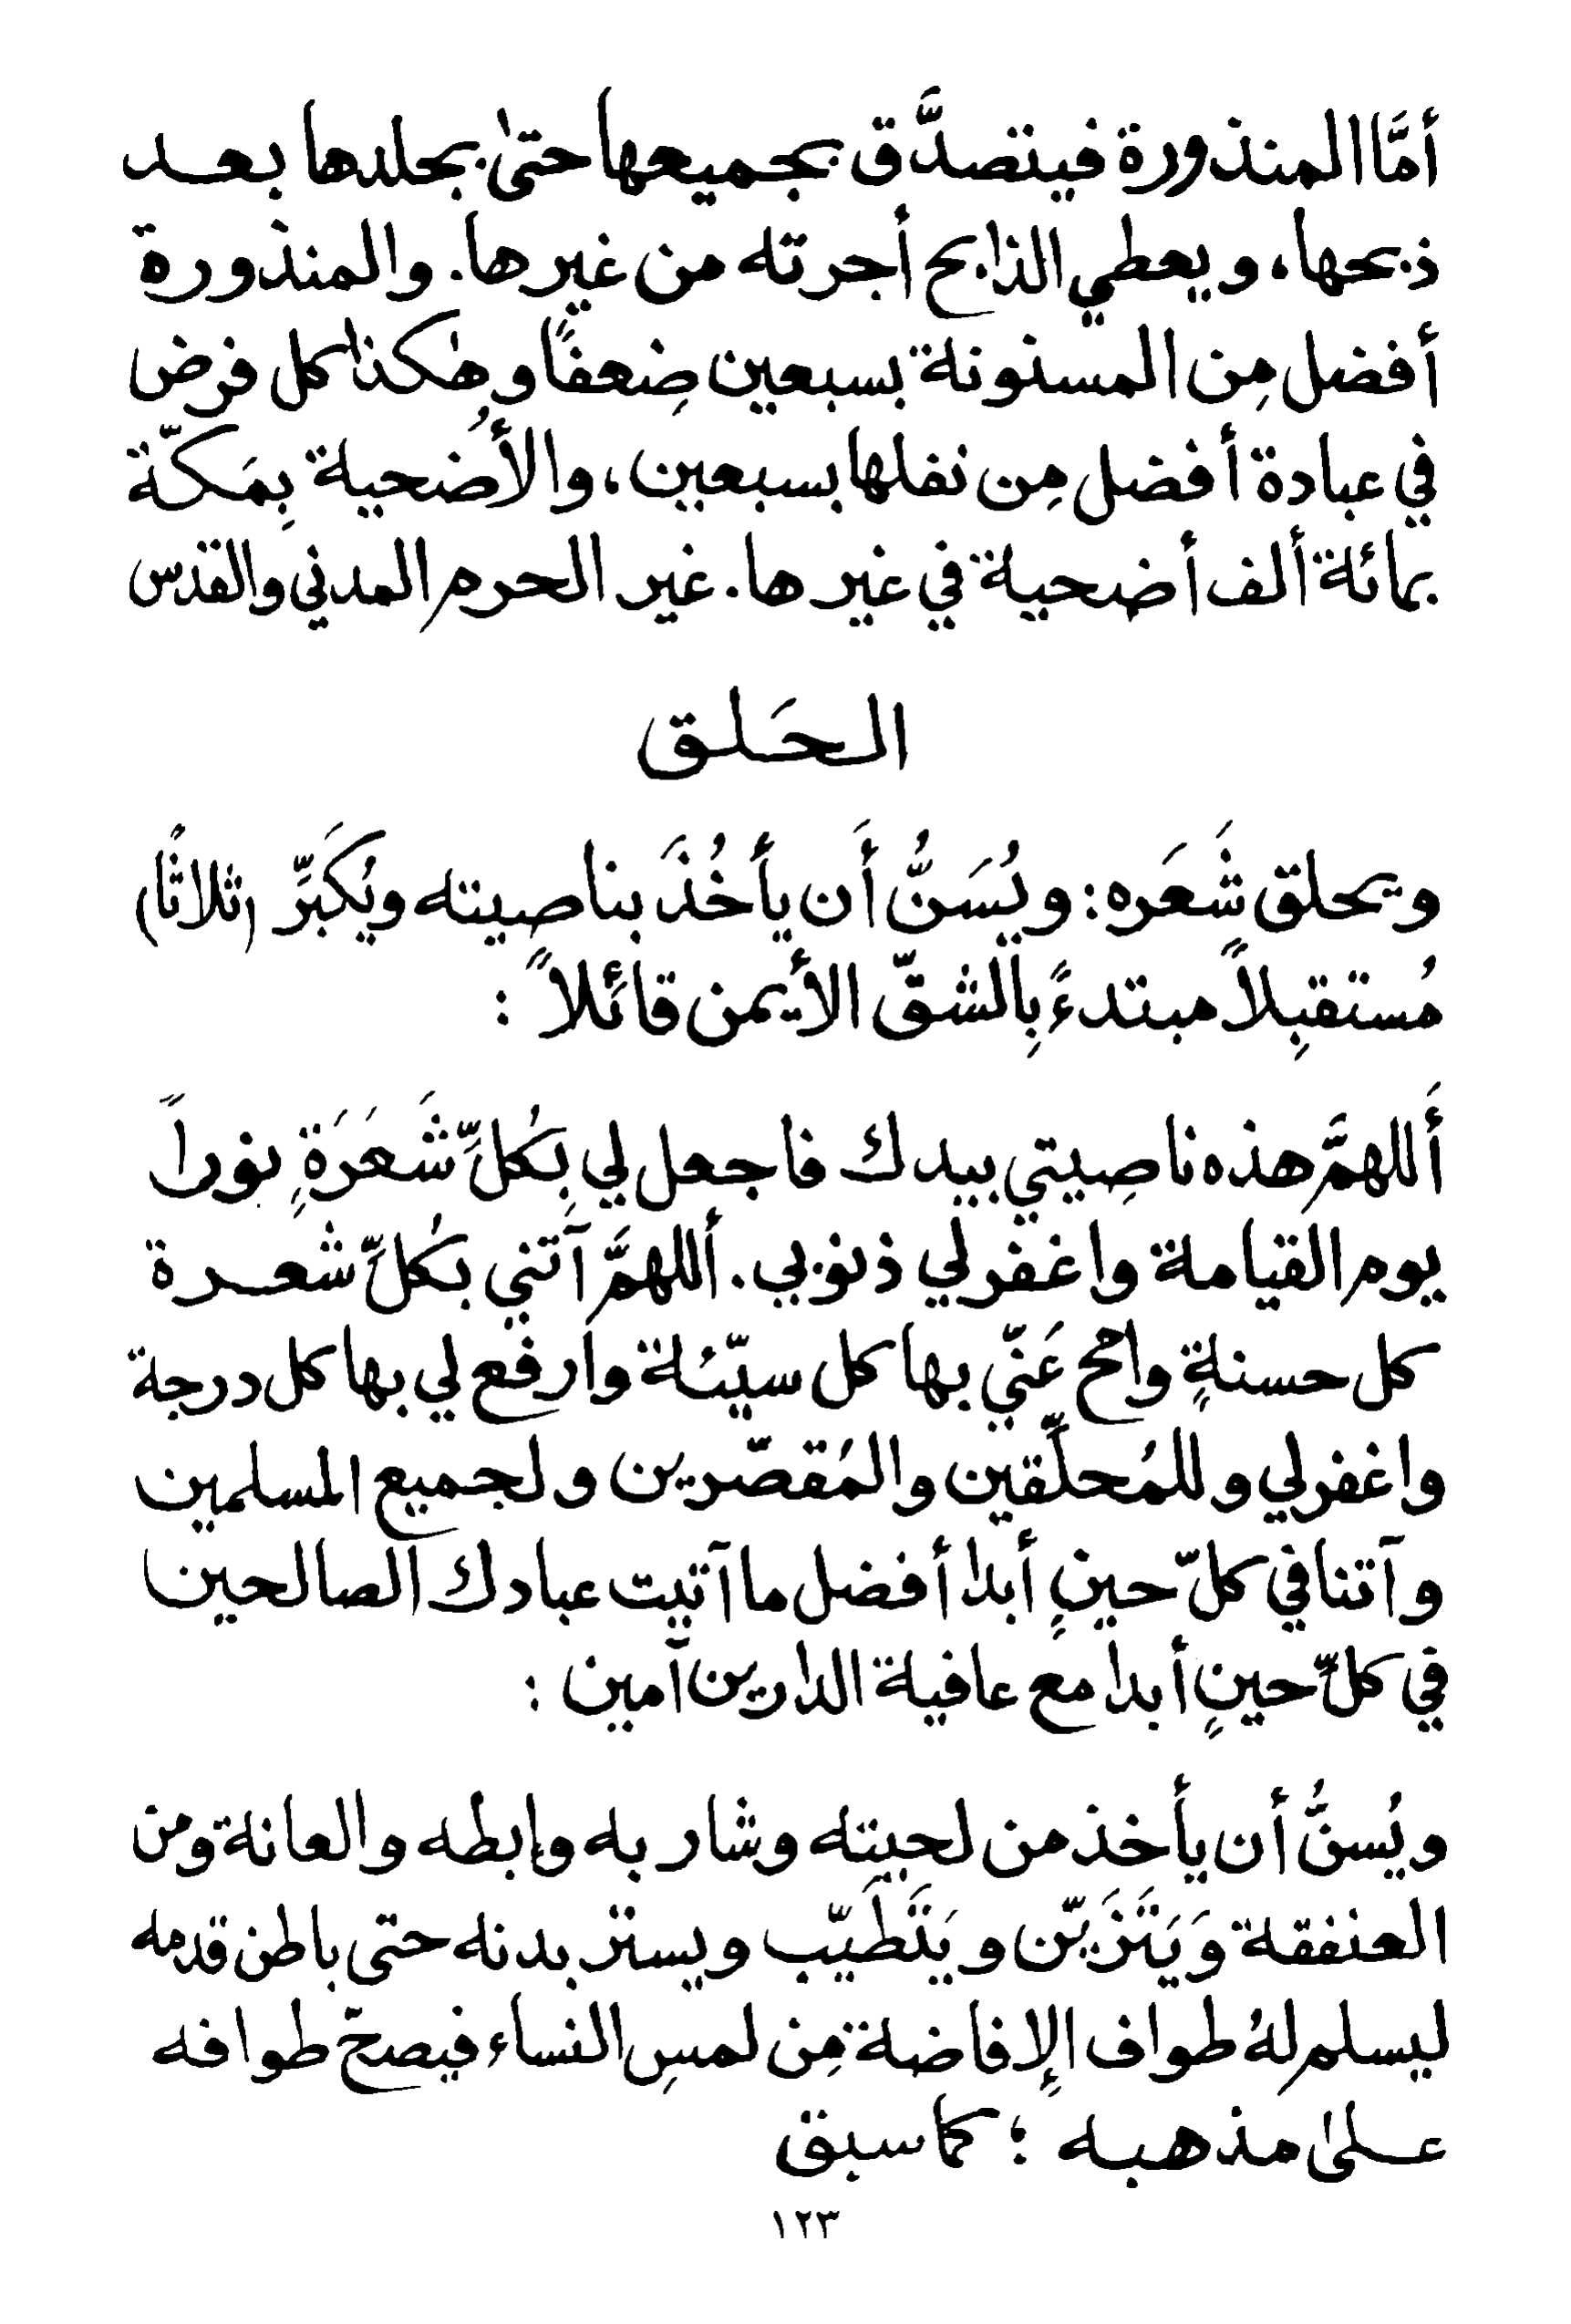 أمَّا المنذورة فيتصدَّق بجميعها حتىٰ بجلدها بعد
ذبحها، ويعطي الذابح أجرته من غيرها. والمنذورة
أفضل مِن المسنونة بسبعين ضِعفًا وهٰكذا كل فرض
في عبادة أفضل مِن نفلها بسبعين، والأُضحية بِمَكّة
بمائة ألف أضحية في غيرها. غير الحرم المدني والقدس
الحَلق
ويحلق شَعَره: ويُسَنُّ أَن يأخُذَ بناصيته ويُكَبِّر (ثلاثًا)
مُستقبِلاً مبتدءً بِالشقّ الأيمن قائلاً :
أَللهمَّ هذه ناصِيتي بيدك فاجعل لي بِكُلِّ شَعَرَةٍ نوراً
يوم القيامة واغفر لي ذنوبي. أللهمَّ آتني بكُلِّ شعرة
كل حسنةٍ وامح عَنّي بها كل سيّئة وارفع لي بها كل درجة
واغفر لي وللمُحلِّقين والمُقصّرين ولجميع المسلمين
وآتنا في كلّ حينٍ أبدا أفضل ما آتيت عبادك الصالحين
في كلِّ حينٍ أبدا مع عافية الدارين آمين :
ويُسنُّ أن يأخذ من لحيته وشاربه وإبطه والعانة ومن
العنفقة وَيَتَزَيّن ويَتَطَيّب ويستر بدنه حتى باطن قدمه
ليسلم لهُ طواف الإفاضة مِن لمسِ النساء فيصحّ طوافه
علىٰ مذهبه ؛ كما سبق
١٢٣